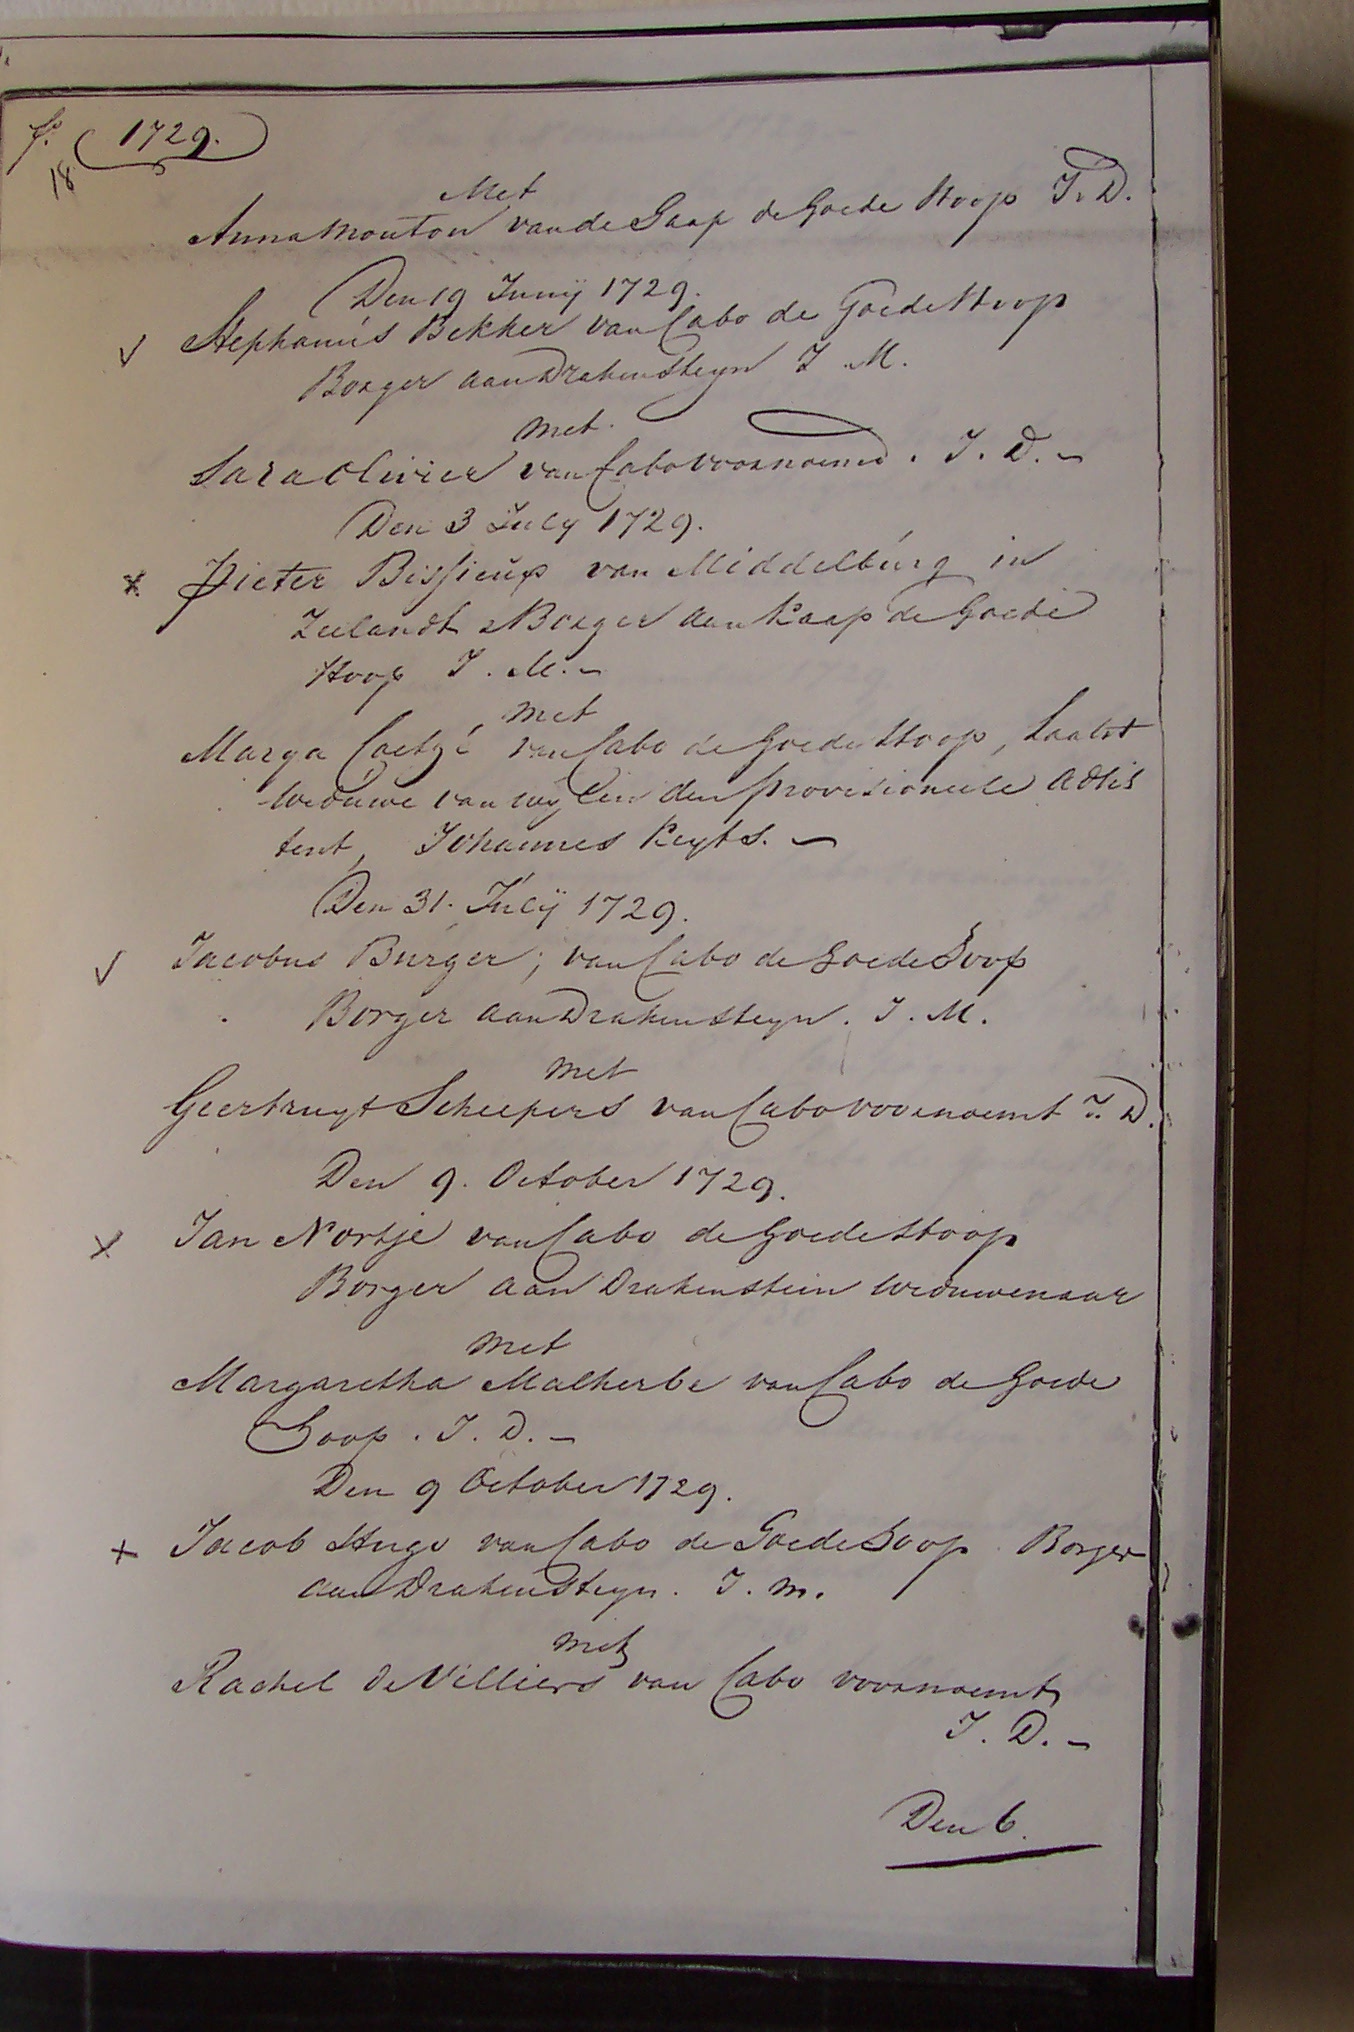 fo. 1729.
18
Met
Anna Mouton van de Caap de Goede Hoop J. D.
Den 19 Junij 1729.
Stephanus Bekker van Cabo de Goede Hoop
Borger aan Drakensteyn J. M.
met
Sara Olivier van Cabo voornoemd. J. D. -
Den 3 July 1729.
Pieter Bissieux van Middelburg in
Zeelandt Borger aan Kaap de Goede
Hoop J. M. -
met
Marga Coetzé van Cabo de Goede Hoop, Laatst
weduwe van wijlen den provisioneele adsis
tent, Johannes Keyts. -
Den 31. Julij 1729.
Jacobus Burger; van Cabo de Goede Hoop
Borger aan Drakensteyn. J. M.
met
Geertruyt Scheepers van Cabo voornoemt J. D.
Den 9. October 1729.
Jan Nortje van Cabo de Goede Hoop
Borger aan Drakenstein weduwenaar
met
Margaretha Malherbe van Cabo de Goede
Hoop. J. D. -
Den 9 October 1729.
Jacob Hugo van Cabo de Goede Hoop Borger
aan Drakensteyn. J. m.
met
Rachel de Villiers van Cabo voornoemt
J. D. -
Den 6.